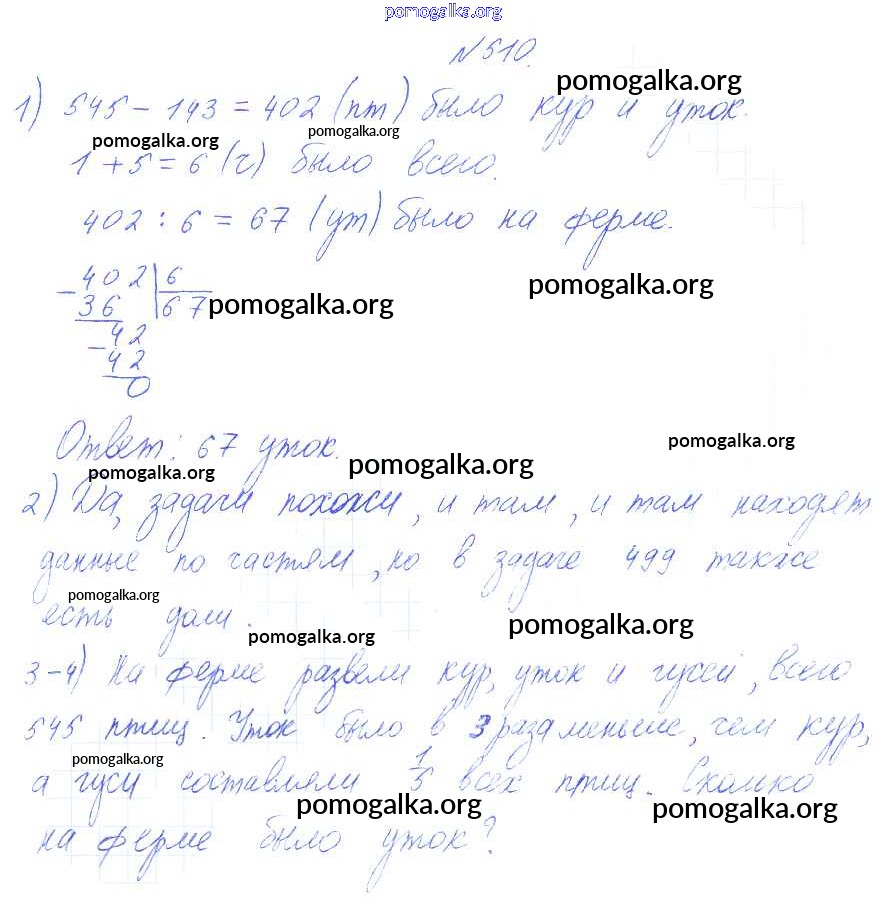 pomogalka.org
№510.
pomogalka.org
1) 545 - 143 = 402 (пт) было кур и уток.
pomogalka.org pomogalka.org
1 + 5 = 6 (ч) было всего.
402 : 6 = 67 (ут) было на ферме.
- 402 | 6
36 | 67 pomogalka.org pomogalka.org
- 42
42
0
Ответ: 67 уток.
pomogalka.org
pomogalka.org pomogalka.org
2) Да, задачи похожи, и там, и там находят
данные по частям, но в задаче 499 также
pomogalka.org
есть доли.
pomogalka.org pomogalka.org
3-4) На ферме развели кур, уток и гусей, всего
545 птиц. Уток было в 3 раза меньше, чем кур,
pomogalka.org
а гуси составляли 1/5 всех птиц. Сколько
pomogalka.org pomogalka.org
на ферме было уток?
pomogalka.org